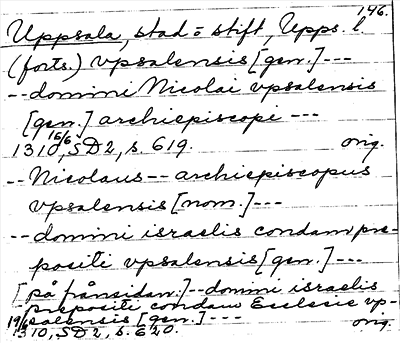 146.
Uppsala, stad o stift, Upps. l.
(forts.) vpsalensis [gen.] ---
-- domini Nicolai vpsalensis
[gen.] archiepiscopi ---
16/6
1310, SD 2, s. 619. orig.
-- Nicolaus -- archiepiscopus
vpsalensis [nom.] ---
-- domini israelis condam pre-
positi vpsalensis [gen.] ---
[på frånsidan:] -- domini israelis
prepositi condam Ecclesie vp-
salensis [gen.] ---
1310, SD 2, s. 620. orig.